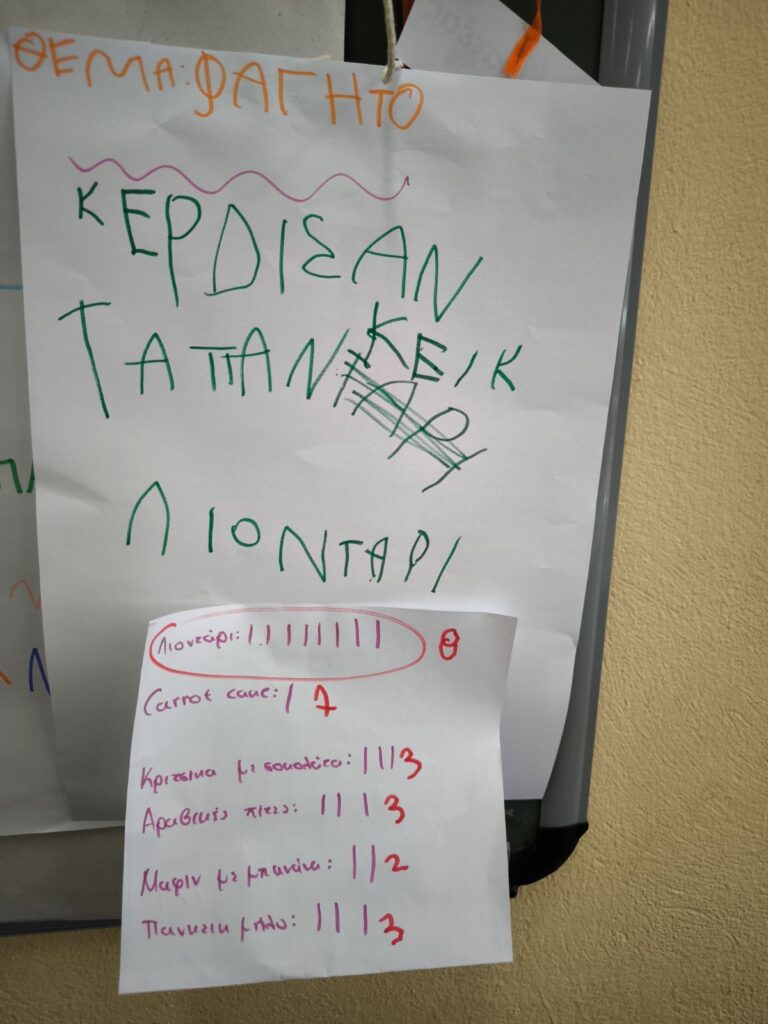 ΘΕΜΑ: ΦΑΓΗΤΟ
ΚΕΡΔΙΣΑΝ
ΤΑ ΠΑΝ ΚΕΙΚ
ΛΙΟΝΤΑΡΙ
Λιοντάρι: | | | | | | | | 8
Carrot cake: | 1
Κριτσινια με σοκολάτα: | | | 3
Αραβικές πίτες: | | | 3
Μαφιν με μπανάνα: | | 2
Πανκεικ μήλο: | | | 3